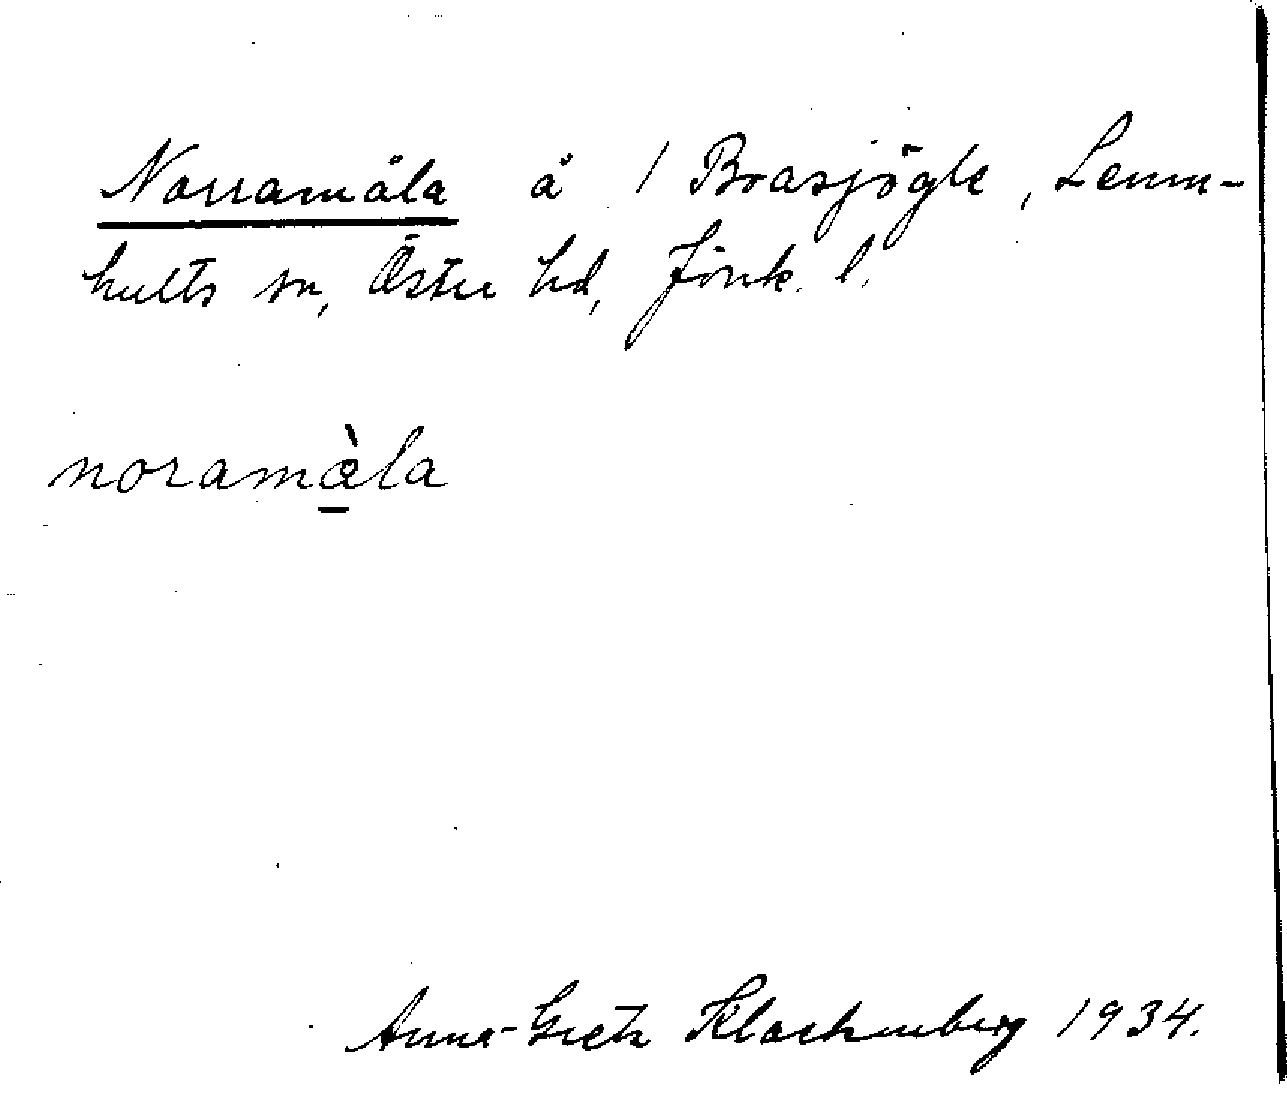 Norramåla å 1 Brasjögle, Lemn-
hults sn, Östra hd, Jönk. l.
noramàla
Anna-Greta Klockenberg 1934.